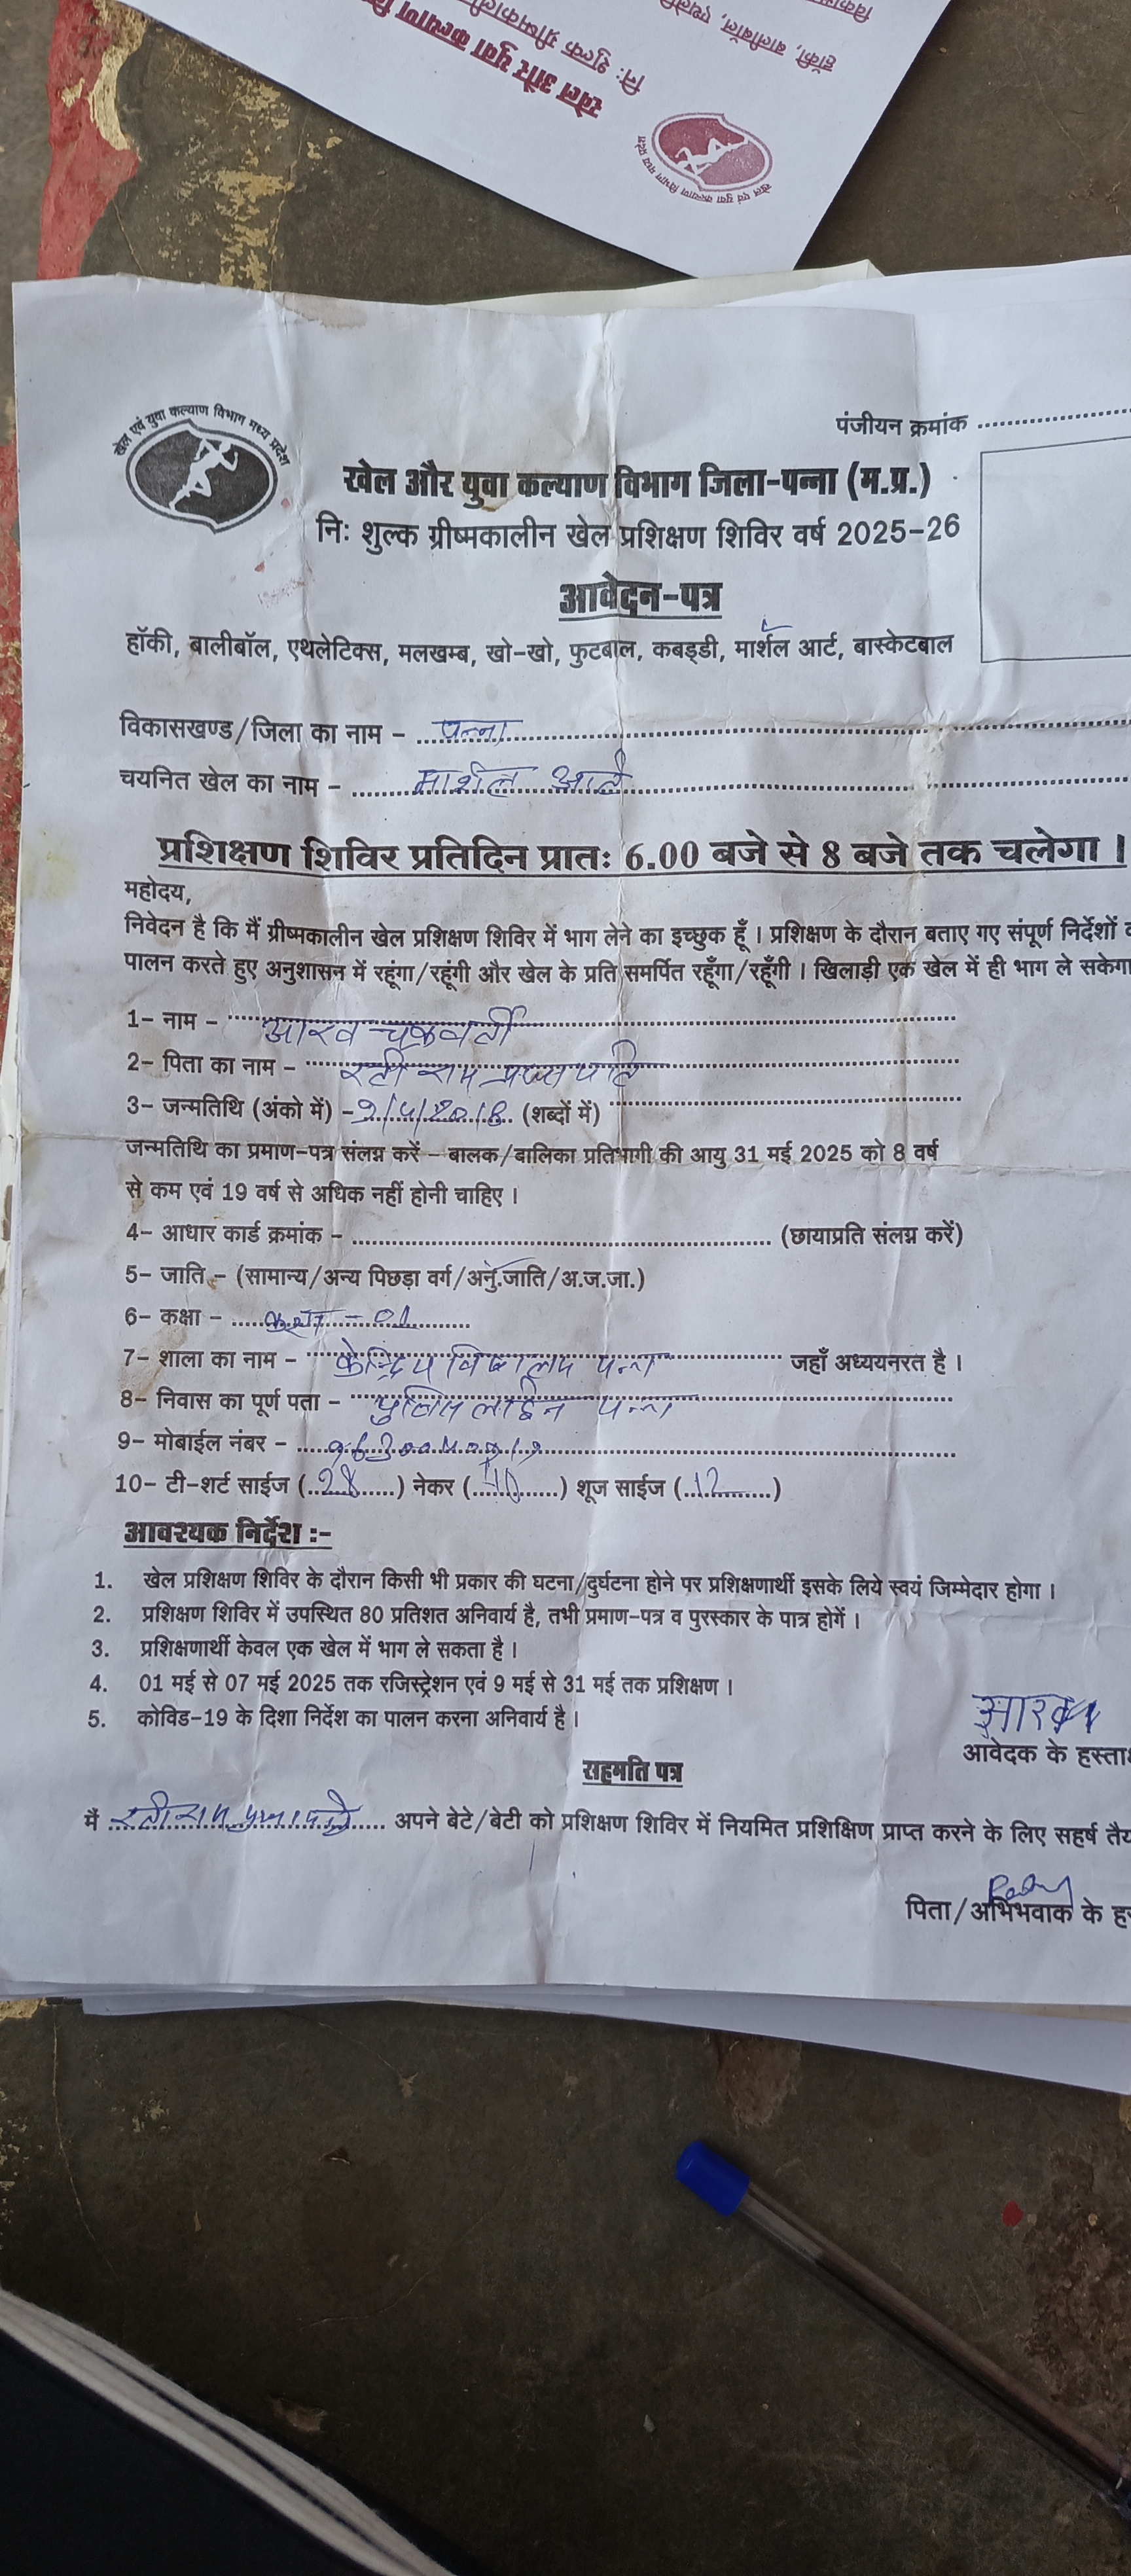 खेल और युवा कल्याण
नि: शुल्क
हॉकी, बालीबॉल,
खेल एवं युवा कल्याण विभाग मध्य प्रदेश
खेल एवं युवा कल्याण विभाग मध्य प्रदेश
पंजीयन क्रमांक
खेल और युवा कल्याण विभाग जिला-पन्ना (म.प्र.)
नि: शुल्क ग्रीष्मकालीन खेल प्रशिक्षण शिविर वर्ष 2025-26
आवेदन-पत्र
हॉकी, बालीबॉल, एथलेटिक्स, मलखम्ब, खो-खो, फुटबाल, कबड्डी, मार्शल आर्ट, बास्केटबाल
विकासखण्ड/जिला का नाम - पन्ना
चयनित खेल का नाम - मार्शल आर्ट
प्रशिक्षण शिविर प्रतिदिन प्रातः 6.00 बजे से 8 बजे तक चलेगा ।
महोदय,
निवेदन है कि मैं ग्रीष्मकालीन खेल प्रशिक्षण शिविर में भाग लेने का इच्छुक हूँ । प्रशिक्षण के दौरान बताए गए संपूर्ण निर्देशों
पालन करते हुए अनुशासन में रहूंगा/रहूंगी और खेल के प्रति समर्पित रहूँगा/रहूँगी । खिलाड़ी एक खेल में ही भाग ले सकेगा
1- नाम - आरव चक्रवर्ती
2- पिता का नाम - रती राम प्रजापति
3- जन्मतिथि (अंको में) - (शब्दों में)
जन्मतिथि का प्रमाण-पत्र संलग्न करें - बालक/बालिका प्रतिभागी की आयु 31 मई 2025 को 8 वर्ष
से कम एवं 19 वर्ष से अधिक नहीं होनी चाहिए ।
4- आधार कार्ड क्रमांक - (छायाप्रति संलग्न करें)
5- जाति - (सामान्य/अन्य पिछड़ा वर्ग/अनु.जाति/अ.ज.जा.)
6- कक्षा - कक्षा - 01
7- शाला का नाम - केन्द्रिय विद्यालय पन्ना जहाँ अध्ययनरत है ।
8- निवास का पूर्ण पता - पुलिस लाईन पन्ना
9- मोबाईल नंबर -
10- टी-शर्ट साईज (28) नेकर () शूज साईज (12)
आवश्यक निर्देश :-
1. खेल प्रशिक्षण शिविर के दौरान किसी भी प्रकार की घटना/दुर्घटना होने पर प्रशिक्षणार्थी इसके लिये स्वयं जिम्मेदार होगा ।
2. प्रशिक्षण शिविर में उपस्थित 80 प्रतिशत अनिवार्य है, तभी प्रमाण-पत्र व पुरस्कार के पात्र होगें ।
3. प्रशिक्षणार्थी केवल एक खेल में भाग ले सकता है ।
4. 01 मई से 07 मई 2025 तक रजिस्ट्रेशन एवं 9 मई से 31 मई तक प्रशिक्षण ।
5. कोविड-19 के दिशा निर्देश का पालन करना अनिवार्य है ।
आरव
आवेदक के हस्ता
सहमति पत्र
मैं रती राम प्रजापति अपने बेटे/बेटी को प्रशिक्षण शिविर में नियमित प्रशिक्षिण प्राप्त करने के लिए सहर्ष तैय
पिता/अभिभवाक के